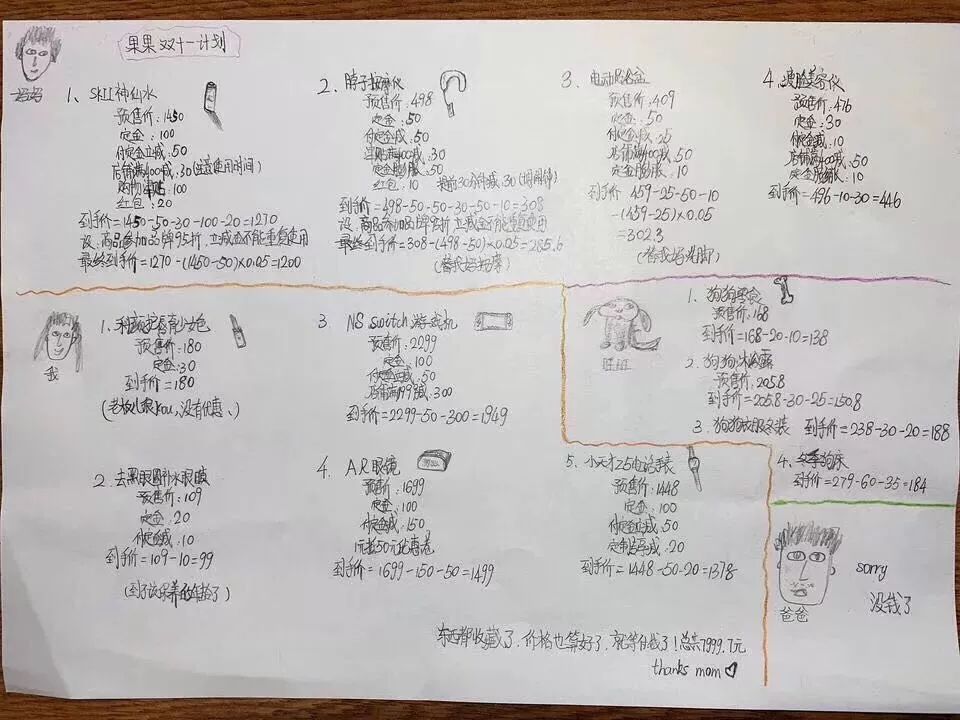 果果双十一计划
妈妈
1、SKII神仙水
预售价：1450
定金：100
付定立减：50
店铺满400减：30(注意使用时间)
购物津贴：100
红包：20
到手价=1450-50-30-100-20=1270
设、商品参加品牌95折，立减金不能重复使用
最终到手价=1270-(1450-50)×0.05=1200
2、脖子按摩仪
预售价：498
定金：50
付定立减：50
津贴满400减：30
定金膨胀：50
红包：10
前30分钟减：30(用闹钟)
到手价=498-50-50-30-50-10=308
设、商品参加品牌95折 立减金不能重复使用
最终到手价=308-(498-50)×0.05=285.6
(替我妈按摩)
3、电动
预售价：409
定金：50
付定立减：25
店铺满400减：50
定金膨胀：10
到手价 459-25-50-10
-(459-25)×0.05
=302.3
(替我妈洗脚)
4、瘦脸美容仪
预售价：476
定金：30
付定立减：10
店铺满400减：50
定金膨胀：10
到手价=496-10-30=446
我
1、护唇膏少女色
预售价：180
定金：30
到手价=180
(老板儿狠you，没有优惠、)
2、去黑眼圈补水眼膜
预售价：109
定金：20
付定立减：10
到手价=109-10=99
(到了该保养的年龄了)
3 NS switch 游戏机
预售价：2299
定金：100
付定立减：50
店铺满199减：300
到手价=2299-50-300=1949
4、AR眼镜
预售价：1699
定金：100
付定减：150
1元抢50元优惠卷
到手价=1699-150-50=1499
5、小天才Z5电话手表
预售价：1448
定金：100
付定立减：50
定制版再减：20
到手价=1448-50-20=1378
旺旺
1、狗狗零食
预售价：168
到手价=168-20-10=138
2、狗狗沐浴露
预售价：205.8
到手价=205.8-30-25=150.8
3、狗狗衣服冬装 到手价=238-30-20=188
4、冬季狗床
到手价=279-60-35=184
爸爸
sorry
没钱了
东西都收藏了，价格也算好了，就等付钱了！总共7999.7元
thanks mom